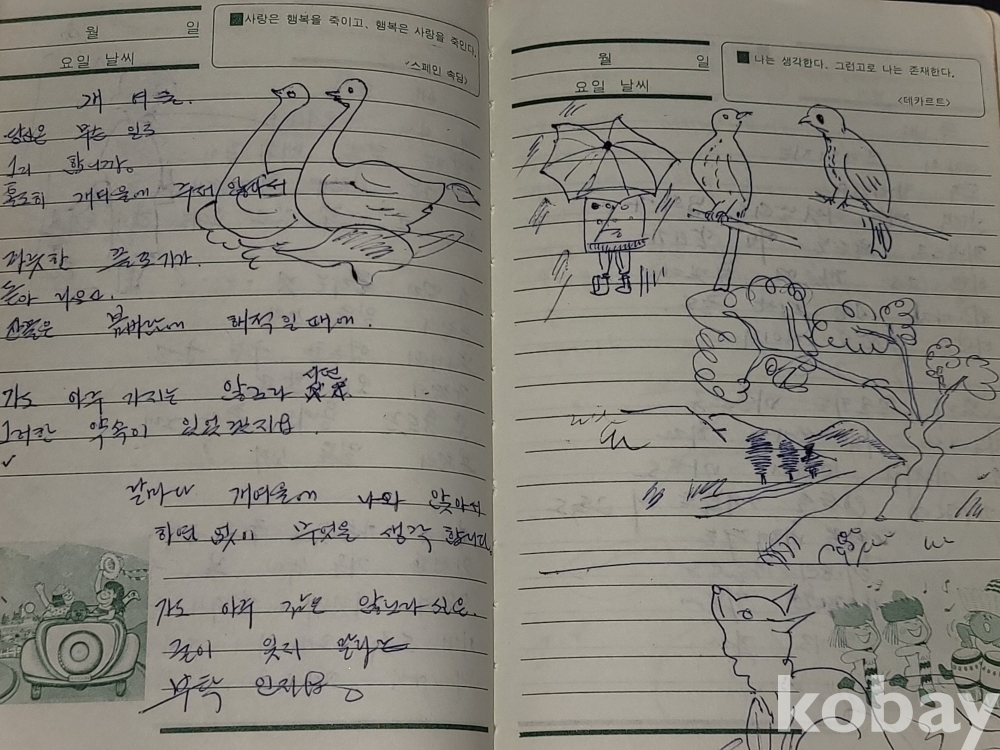 월 일
요일 날씨
사랑은 행복을 죽이고, 행복은 사랑을 죽인다.
<스페인 속담>
개 여울.
당신은 무슨 일로
그리 합니까
홀로히 개여울에 주저 앉아서
파릇한 풀포기가
돋아 나오고.
잔물은 봄바람에 해적일 때에.
가도 아주 가지는 않노라 시던
그러한 약속이 있었겠지요.
날마다 개여울에 나와 앉아서
하염 없이 무엇을 생각 합니다
가도 아주 않노라 심은.
굳이 잊지 말라는
부탁 인지요
월 일
요일 날씨
나는 생각한다. 그런고로 나는 존재한다.
<데카르트>
kobay